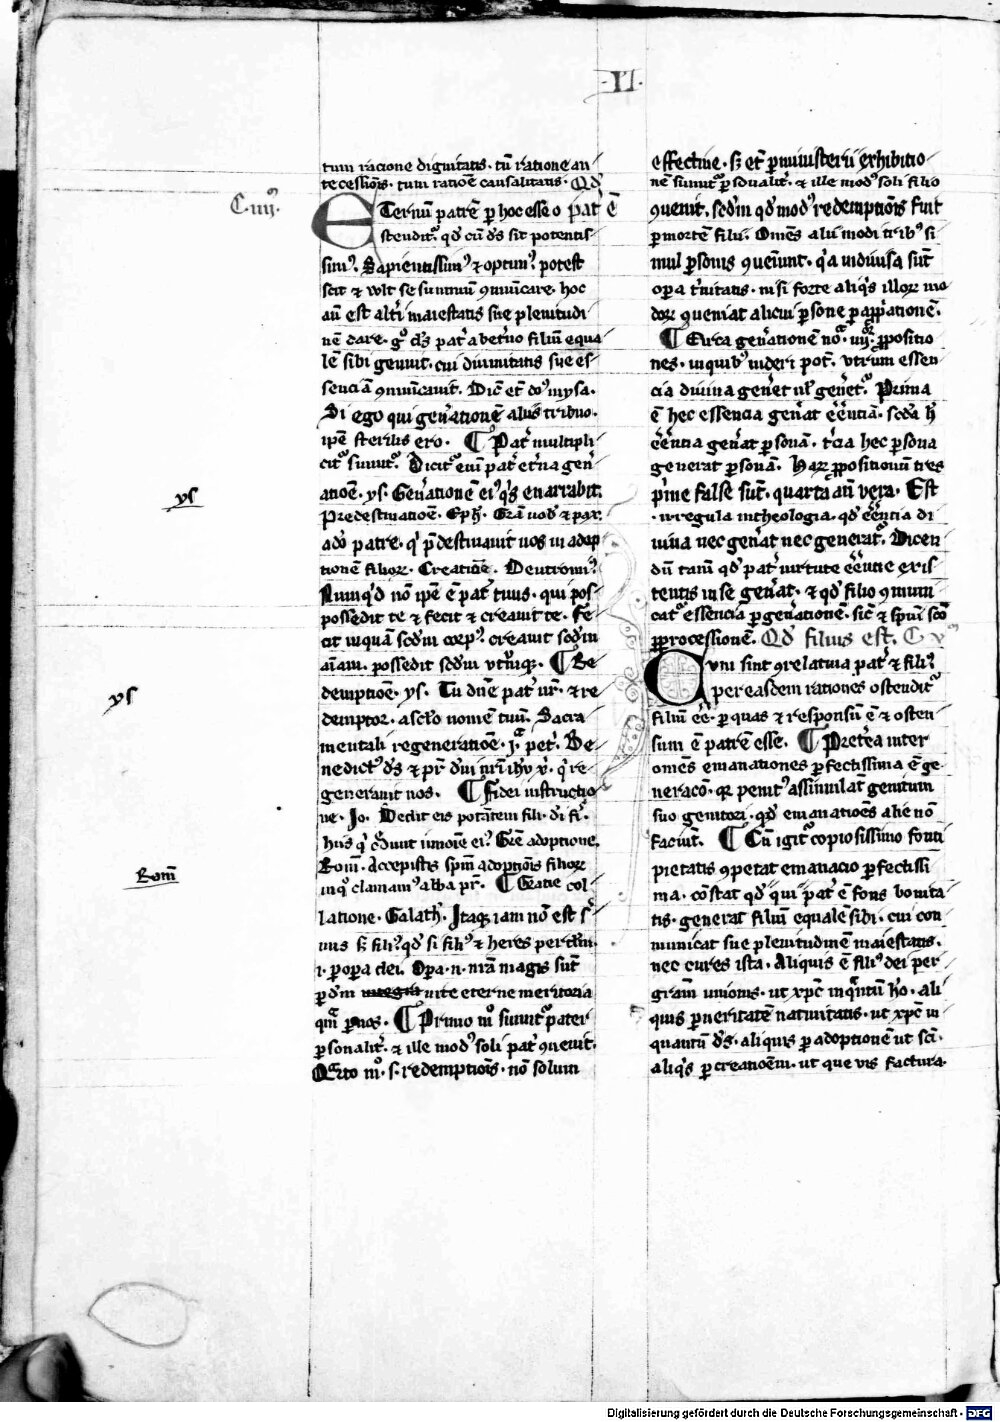 ·II·
tum racione dignitatis· tū ratione an
tecessiōis· tum ratiōe causalitatis· Qd'
C·iiij·
Eternū patrē p hoc esse o pat' ē
stendit᷑· qd' cū d's sit potentis
simꝰ· Sapientissimꝰ ⁊ optimꝰ· potest
scit ⁊ vult se summū ꝯmūicare· hoc
aūt est alt'i maiestatis sue plenitudi
nē dare· gͦ d's pat' ab et'no filiū equa
lē sibi genuit· cui diuinitatis sue es
senciā ꝯmūicauit· Dic̄ et̄ do' in ysa·
Si ego qui gen'ationē alijs tribuo·
ipē sterilis ero· ¶ Pat' multipli
cit' sumit᷑· Dicit᷑ eni pat' et'na gen'
atiōe· ys· Gen'ationē eiꝰ q's enarrabit·
ys
Predestinatiōe· Eph'· Grā uob' ⁊ pax·
a do' patre· q' p̄destinauit nos in adop
tionē filioꝝ· Creatiōe· Deutronoꝰ·
Numq'd nō ipē ē pat' tuus· qui pos
possedit te ⁊ fecit ⁊ creauit te· Fe
cit inquā scd'm corpꝰ· creauit scd'm
aīam· possedit scd'm vt'mqꝫ· ¶ Re
demptiōe· ys· Tu dn̄e pat' nr̄· ⁊ re
ys
demptor· a sc'lo nomē tuū· Sacra
mentali regeneratiōe· i· pet'· Be
nedictꝰ d's ⁊ pr̄ dn̄i nr̄i ih'u x'· q' re
generauit nos· ¶ Fidei instructio
ne· Jo· Dedit eis potātem fili· d'i fi'·
hiis q' c'dunt in noīe eiꝰ· Gr̄e adoptione·
Rom̄· Accepistis spm̄ adoptiōis filioꝝ
Rom̄
in q' clamamꝰ abba pr̄· ¶ Gratie col
latione· Galath'· Itaqꝫ iam nō est s'
uus s̄ filiꝰ· qd' si filiꝰ ⁊ heres per d'm·
i· p opa dei· Opa· n· nr̄a magis sūt
p d'm integra uite eterne meritoria
qm̄ p nos· ¶ Primo mͦ sumit᷑ pater
psonalit'· ⁊ ille modꝰ soli pat' ꝯuenit·
Qͣrto mͦ· s· redemptiōis· nō solum
effectiue· sꝫ et̄ p ministerii exhibitio
nē sumit᷑ psonalit'· ⁊ ille modꝰ soli filio
ꝯuenit· scd'm qd' modꝰ redemptiōis fuit
p mortē filii· Omēs alii modi tribꝰ si
mul psonis ꝯueniunt· q'a indiuisa sūt
opa t'nitatis· nisi forte aliq's illoꝝ mo
doꝝ ꝯueniat alicui psone p appp̄ationē·
¶ Circa gen'ationē nōͣ· iiij· ppositio
nes· in quibꝰ uideri pot'· vtrum essen
cia diuina gen'et ul' gen'et᷑· Prima
ē hec essencia gen'at eēntiā· scda h'
eēntia gen'at psonā· t'cia hec psona
generat psonā· Haꝝ ppositionū tres
p'me false sūt· quarta aūt vera· Est
· n· regula in theologia· qd' eēntia di
uina nec gen'at nec generat᷑· Dicen
dū tam̄ qd' pat' uirtute eēntie exis
tentis in se gen'at· ⁊ qd' filio ꝯmuni
cat᷑ essencia p gen'ationē· sic' ⁊ spūi scō
p processionē· Qd' filius est· C vꝰ
Cum sint ꝯrelatiua pat' ⁊ filiꝰ
per easdem rationes ostendit᷑
filiū eē· p quas ⁊ responsū ē ⁊ osten
sum ē patrē esse· ¶ Pret'ea inter
omēs emanationes pfectissima ē ge
neracō· qꝛ penitꝰ assimilat genitum
suo genitori· qd' emanatiōes alie nō
faciūt· ¶ Cū igit᷑ copiosissimo fonti
pietatis ꝯpetat emanacio pfectissi
ma· cōstat qd' qui pat' ē fons bonita
tis· generat filiū equalē sibi· cui com
municat sue plenitudinē maiestatis·
nec cures ista· Aliquis ē filiꝰ dei per
gram unionis· ut xp̄c in q̄ntū h'o· ali
quis p ueritatē natiuitatis· ut xp̄c in
quantū d's· aliquis p adoptionē ut sc̄i·
aliq's p creatiōem· ut que vis factura·
Digitalisierung gefördert durch die Deutsche Forschungsgemeinschaft - DFG